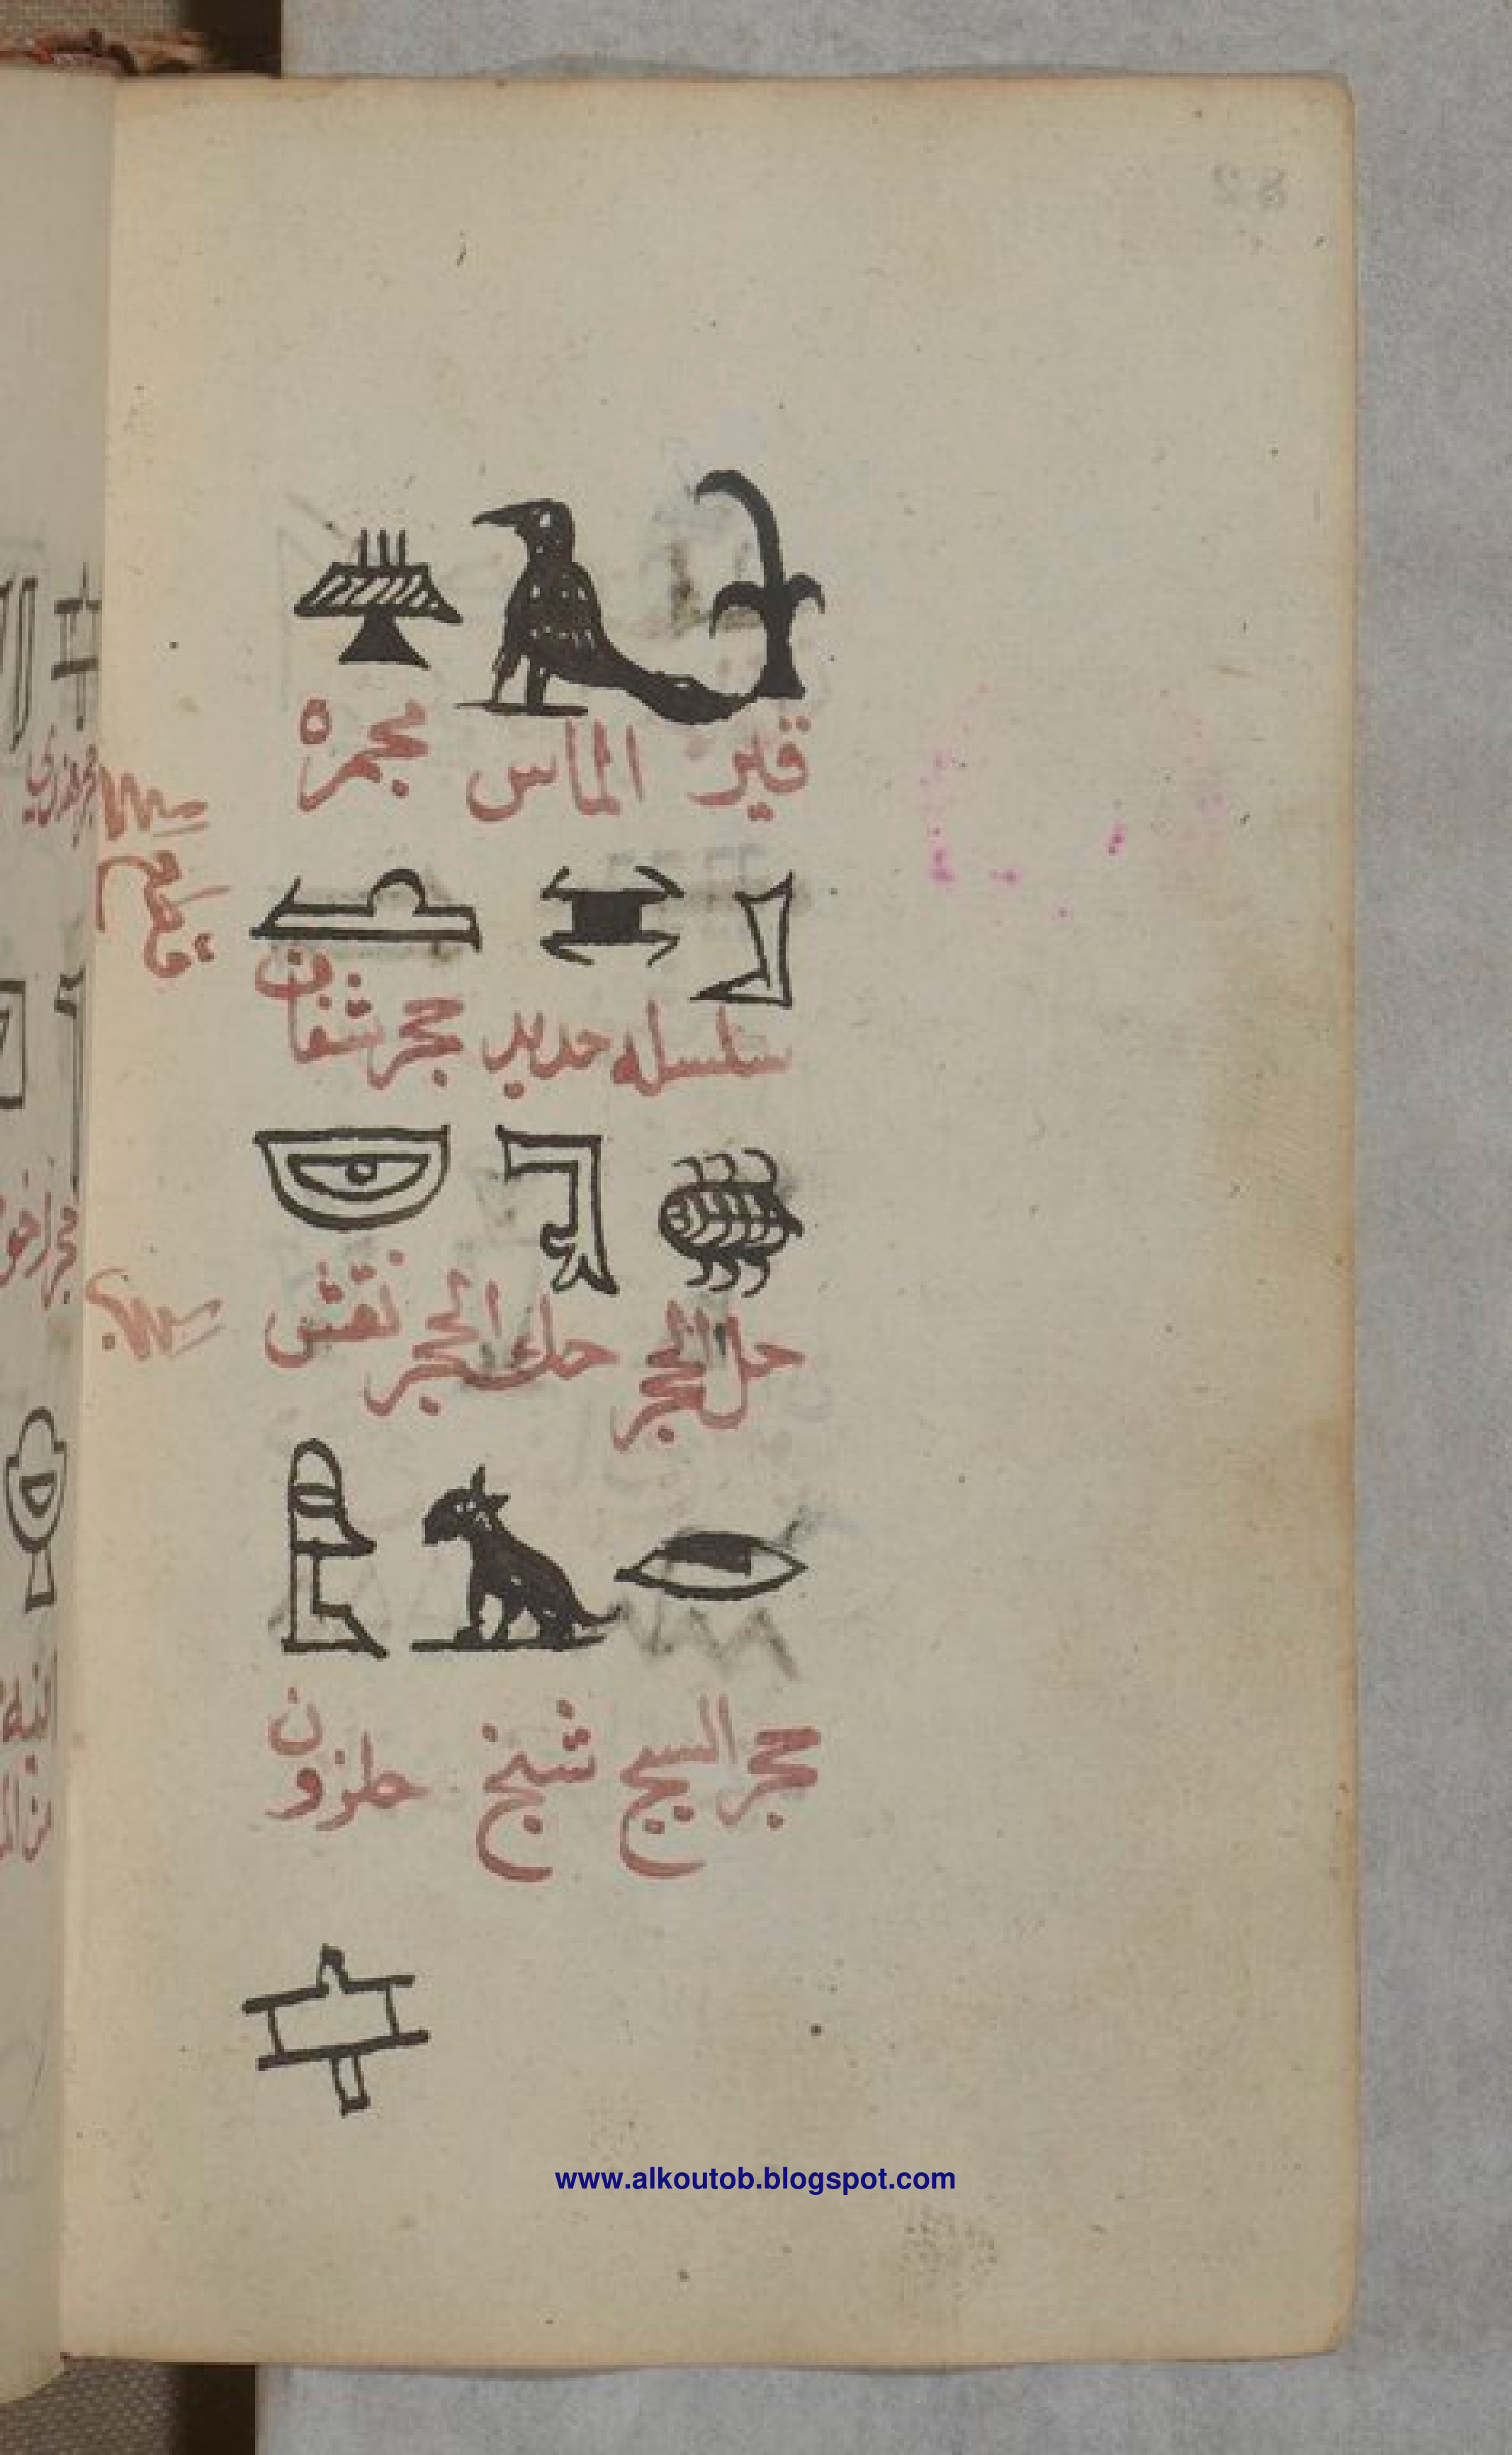 قير الماس مجمره
سلسله حديد حجر شفاف
حل الحجر حك الحجر نقش
حجر السبج شنج حلزون
www.alkoutob.blogspot.com